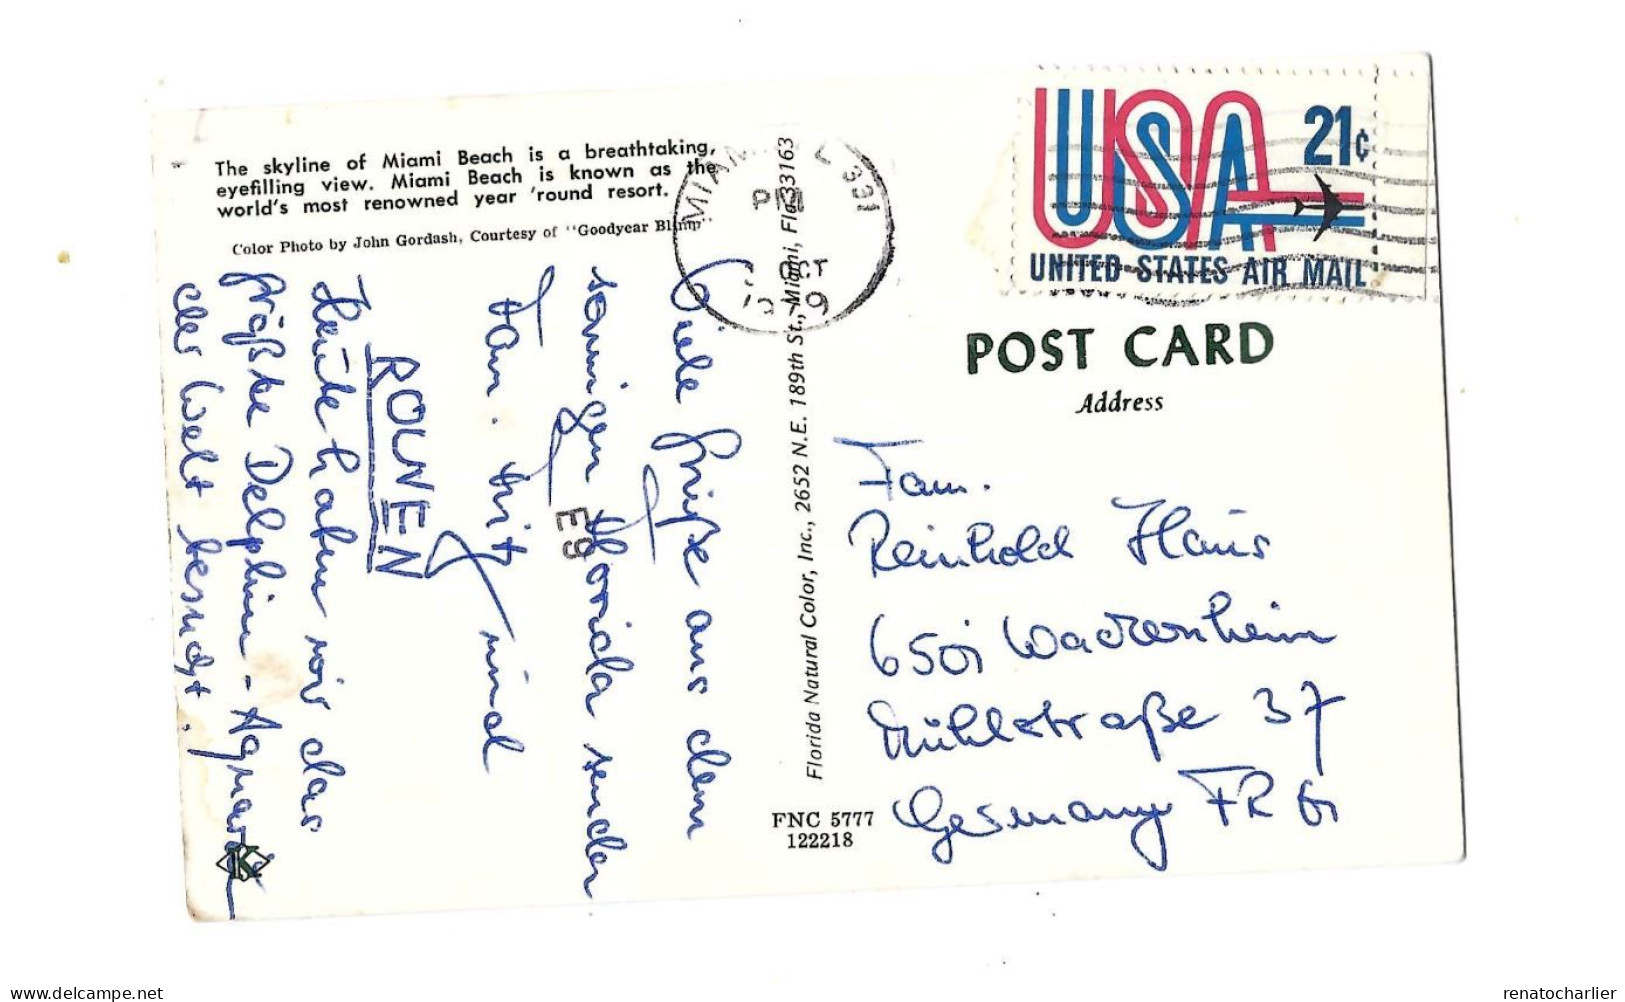 The skyline of Miami Beach is a breathtaking,
eyefilling view. Miami Beach is known as the
world's most renowned year 'round resort.
Color Photo by John Gordash, Courtesy of "Goodyear Blimp"
Viele Grüße aus dem
sonnigen Florida senden
Fam.
und
ROLNEN
Heute haben wir das
größte Delphin-Aquarium
der Welt besucht.
E9
K
MIAMI, FL 331
PM
OCT
Florida Natural Color, Inc., 2652 N.E. 189th St., Miami, Fla. 33163
FNC 5777
122218
USA
21¢
UNITED STATES AIR MAIL
POST CARD
Address
Fam.
Reinhold Haus
6501 Wackernheim
Mühlstraße 37
Germany FRG
renatocharlier